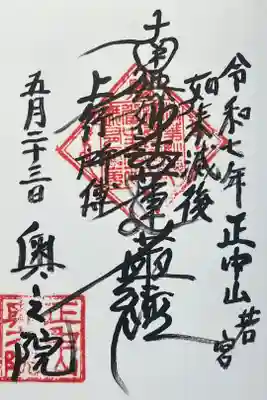 令和七年 正中山 若宮
如来滅後
南無妙法蓮華經
上行所傳
五月二十三日 奥之院